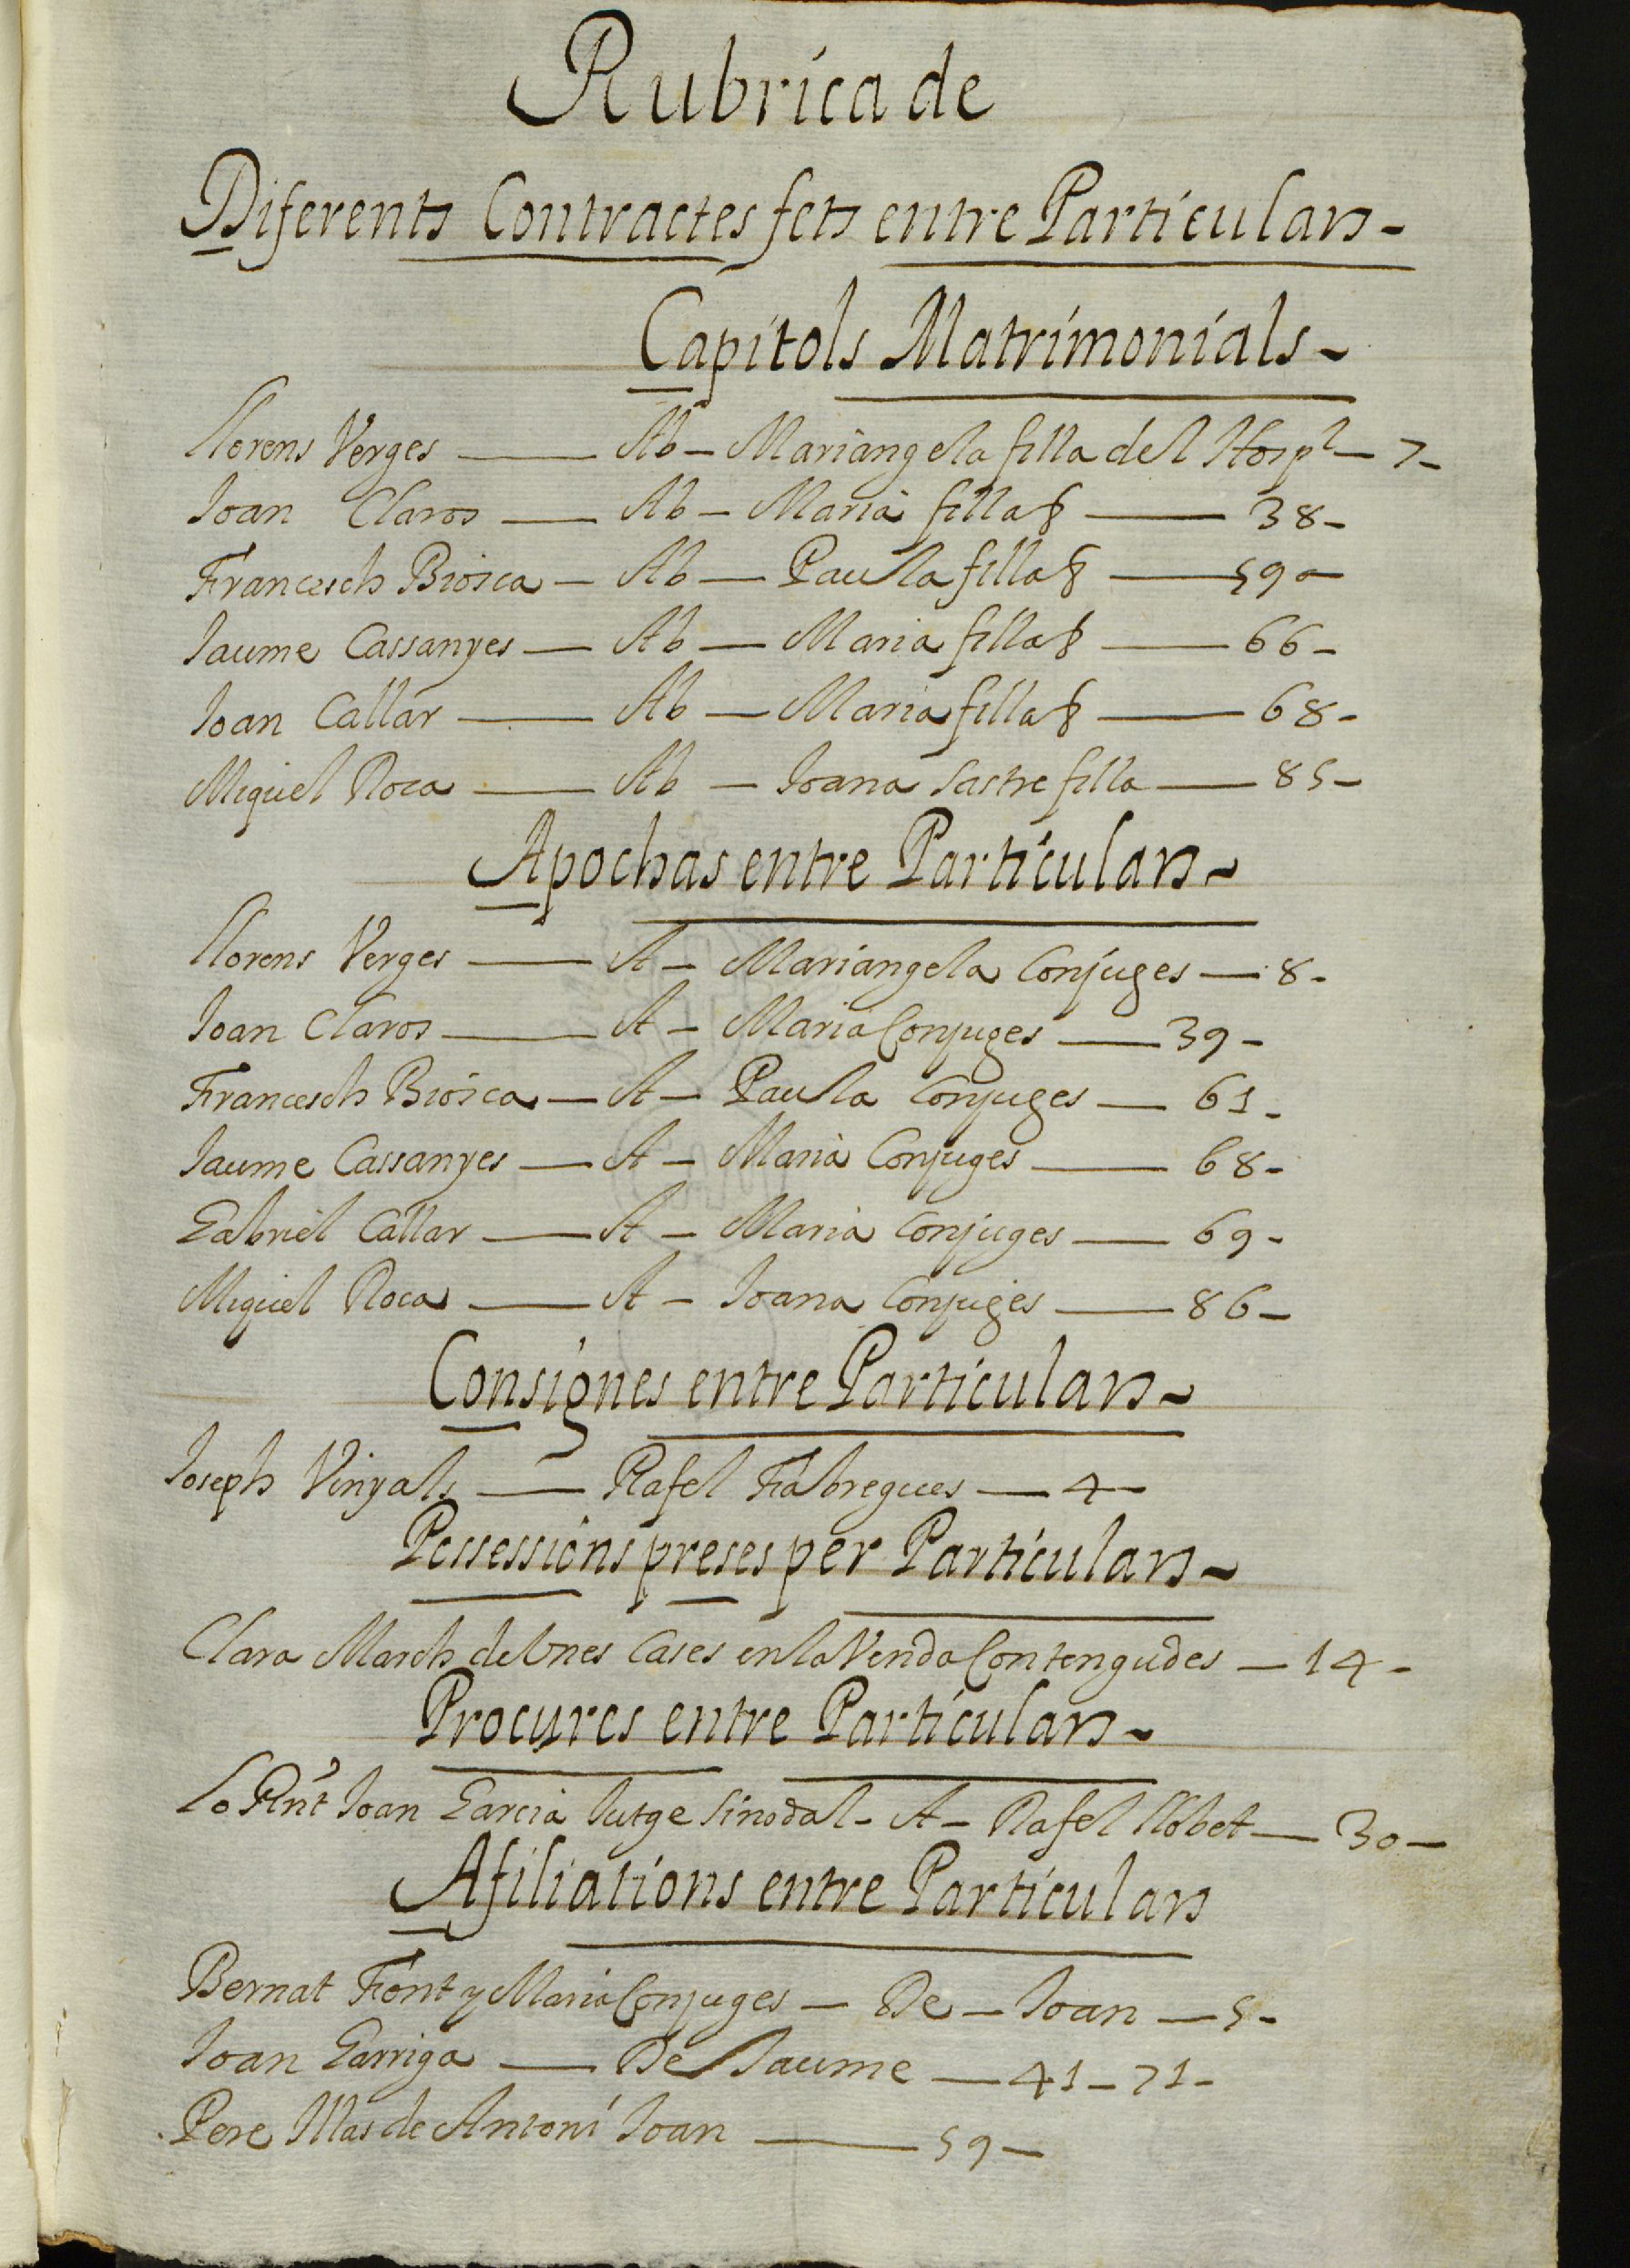 Rubrica de
Diferents Contractes fets entre Particulars -
Capitols Matrimonials -
Llorens Verges — Ab — Mariangela filla del Hospl — 7 -
Joan Claros — Ab — Maria filla — 38 -
Francesch Biosca — Ab — Paula filla — 59 -
Jaume Cassanyes — Ab — Maria filla — 66 -
Joan Callar — Ab — Maria filla — 68 -
Miquel Roca — Ab — Joana Sastre filla — 85 -
Apochas entre Particulars -
Llorens Verges — A — Mariangela Conjuges — 8 -
Joan Claros — A — Maria Conjuges — 39 -
Francesch Biosca — A — Paula Conjuges — 61 -
Jaume Cassanyes — A — Maria Conjuges — 68 -
Gabriel Callar — A — Maria Conjuges — 69 -
Miquel Roca — A — Joana Conjuges — 86 -
Consignes entre Particulars -
Joseph Vinyals — Rafel Fabregues — 4 -
Possessions preses per Particulars -
Clara March de Unes Cases en la Venda Contengudes — 14 -
Procures entre Particulars -
Lo Rnt Joan Garcia Jutge Sinodal - A - Rafel Llobet — 30 -
Afiliations entre Particulars
Bernat Font y Maria Conjuges — De — Joan — 5 -
Joan Garriga — De Jaume — 41 - 71 -
Pere Mas de Antoni Joan — 59 -